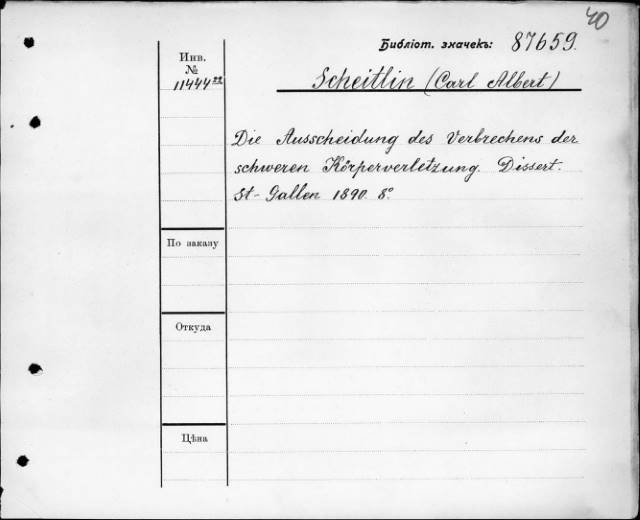 40
Библіот. значекъ: 87659.
Инв.
№
11444²²
Scheitlin (Carl Albert)
Die Ausscheidung des Verbrechens der
schweren Körperverletzung. Dissert.
St-Gallen 1890. 8°.
По заказу
Откуда
Цѣна